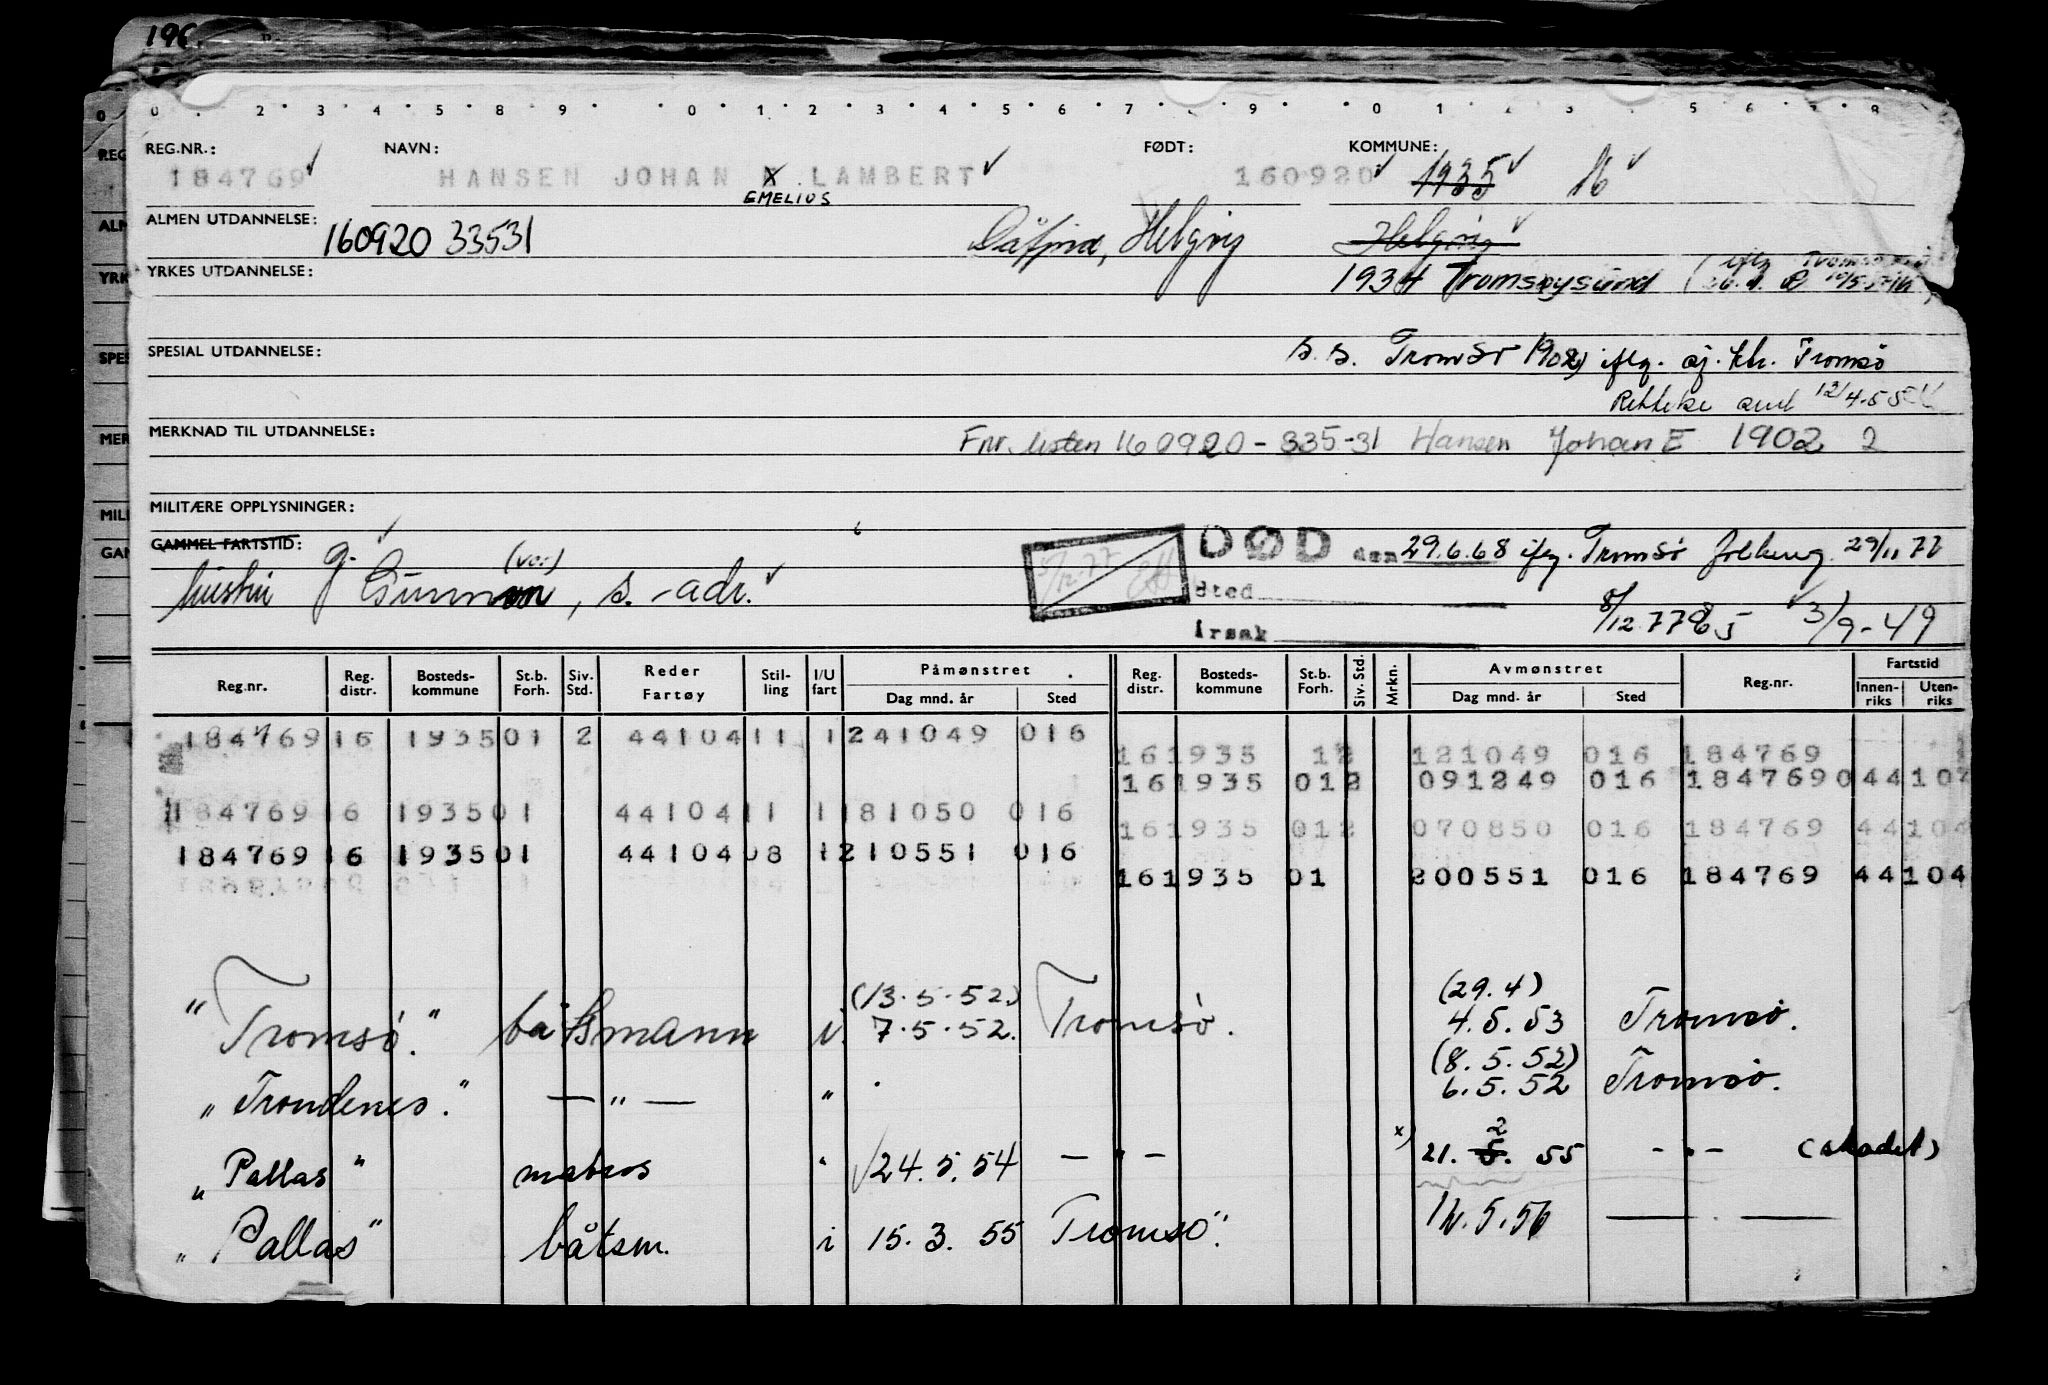 196
0 . 2 . 3 . 4 . 5 . 8 . 9 . 0 . 1 . 2 . 3 . 4 . 5 . 6 . 7 . 9 . 0 . 1 . 2 . 3 . 5 . 6 . 7 . 8
REG.NR.: NAVN: FØDT: KOMMUNE:
184769 HANSEN JOHAN LAMBERT 160920 1935 16
EMELIUS
ALMEN UTDANNELSE: 160920 33531 Helgøy Helgøy
YRKES UTDANNELSE: 1934 Tromsøysund
SPESIAL UTDANNELSE: s.s. Tromsø 1902 iflg. sj. ktr. Tromsø
12/4-55
MERKNAD TIL UTDANNELSE: Fnr. listen 160920-335-31 Hansen Johan E 1902 2
MILITÆRE OPPLYSNINGER:
GAMMEL FARTSTID: g. DØD den 29.6.68 iflg. Tromsø folkereg. 29/11 77
hustru Gunvor (vor), s.-adr. 5/12.77 Sted
Årsak 8/12.77 3/9-49
Reg.nr. Reg. distr. Bosteds-kommune St.b. Forh. Siv. Std. Reder Fartøy Stil-ling I/U fart Påmønstret Reg. distr. Bosteds-kommune St.b. Forh. Siv. Std. Mrkn. Avmønstret Reg.nr. Fartstid
Dag mnd. år Sted Dag mnd. år Sted Innen-riks Uten-riks
184769 16 1935 01 2 44104 11 1 241049 016
161935 12 121049 016 184769
161935 012 091249 016 184769 0 44 104
184769 6 1935 01 44104 11 1 181050 016
161935 012 070850 016 184769 44 104
184769 16 1935 01 44104 08 1 210551 016
161935 01 200551 016 184769 44 104
(13.5.52) (29.4)
"Tromsø." båtsmann i. 7.5.52. Tromsø. 4.5.53 Tromsø.
(8.5.52)
"Trondenes." — " — " 6.5.52 Tromsø.
2
"Pallas" matros " 24.5.54 — " — x) 21. 5. 55 - " - (skadet)
"Pallas" båtsm. i 15.3.55 Tromsø. 12.5.56 — . —